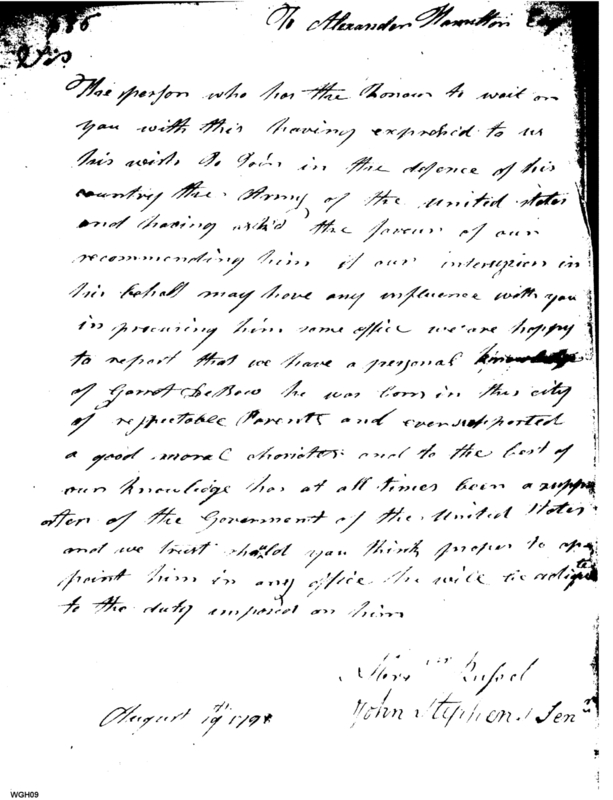 To Alexander Hamilton Esq
Sir
The person who has the Honour to wait on
you with this having expressed to us
his wish to Join in the defence of his
country the Army of the united states
and having ask'd the favour of our
recommending him if our
his behalf may have any influence with you
in procuring him some office we are happy
to report that we have a personal knowledge
of Garrot DeBow he was born in this city
of respectable Parents and ever supported
a good moral and to the best of
our knowledge has at all times been a
of the Goverment of the United States
and we trust should you think proper to
point him in any office he will be
to the duty imposed on him
Russel
John Stephens Senr
August 19th 1798
WGH09